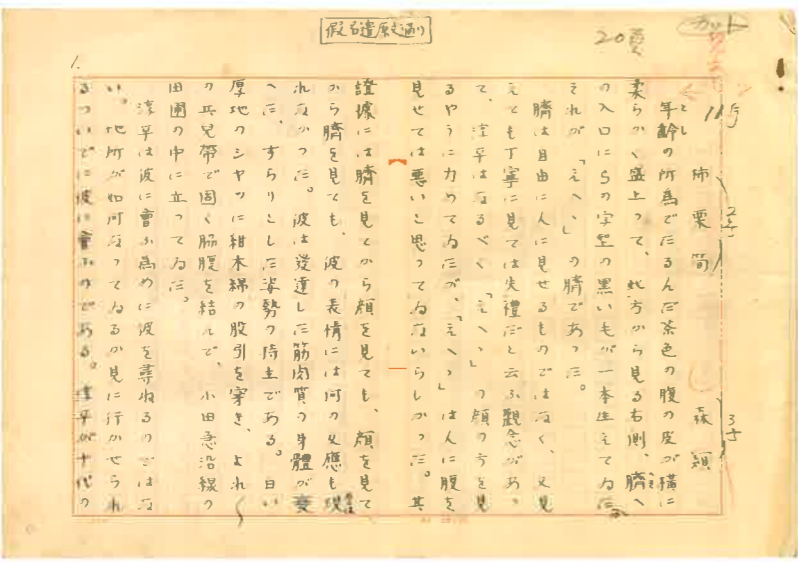 假名遣原文通り
カット
1.
柿栗筍　森
年齢の所為でたるんだ茶色の腹の皮が横に
とし
柔らかく盛上って、此方から見る右側、臍へ
の入口にSの字型の黒い毛が一本生えてゐた。
それが「えへゝ」の臍であった。
臍は自由に人に見せるものではなく、又見
えても丁寧に見ては失禮だと云ふ觀念があっ
て、淳平はなるべく「えへゝ」の顔の方を見
るやうに力めてゐたが、「えへゝ」は人に腹を
見せては悪いと思ってゐないらしかった。其
證據には臍を見てから顔を見ても、顔を見て
から臍を見ても、彼の表情には何の反應も現
れなかった。彼は發達した筋肉質の身體が
へた、すらりとした姿勢の持主である。白い
厚地のシャツに紺木綿の股引を穿き、よれ〱
の兵兒帶で固く脇腹を結んで、小田急沿線の
田圃の中に立ってゐた。
淳平は彼に會ふ為めに彼を尋ねるのではな
い。地所が如何なってゐるか見に行かせられ
るついでに彼に會ふのである。淳平が十代の